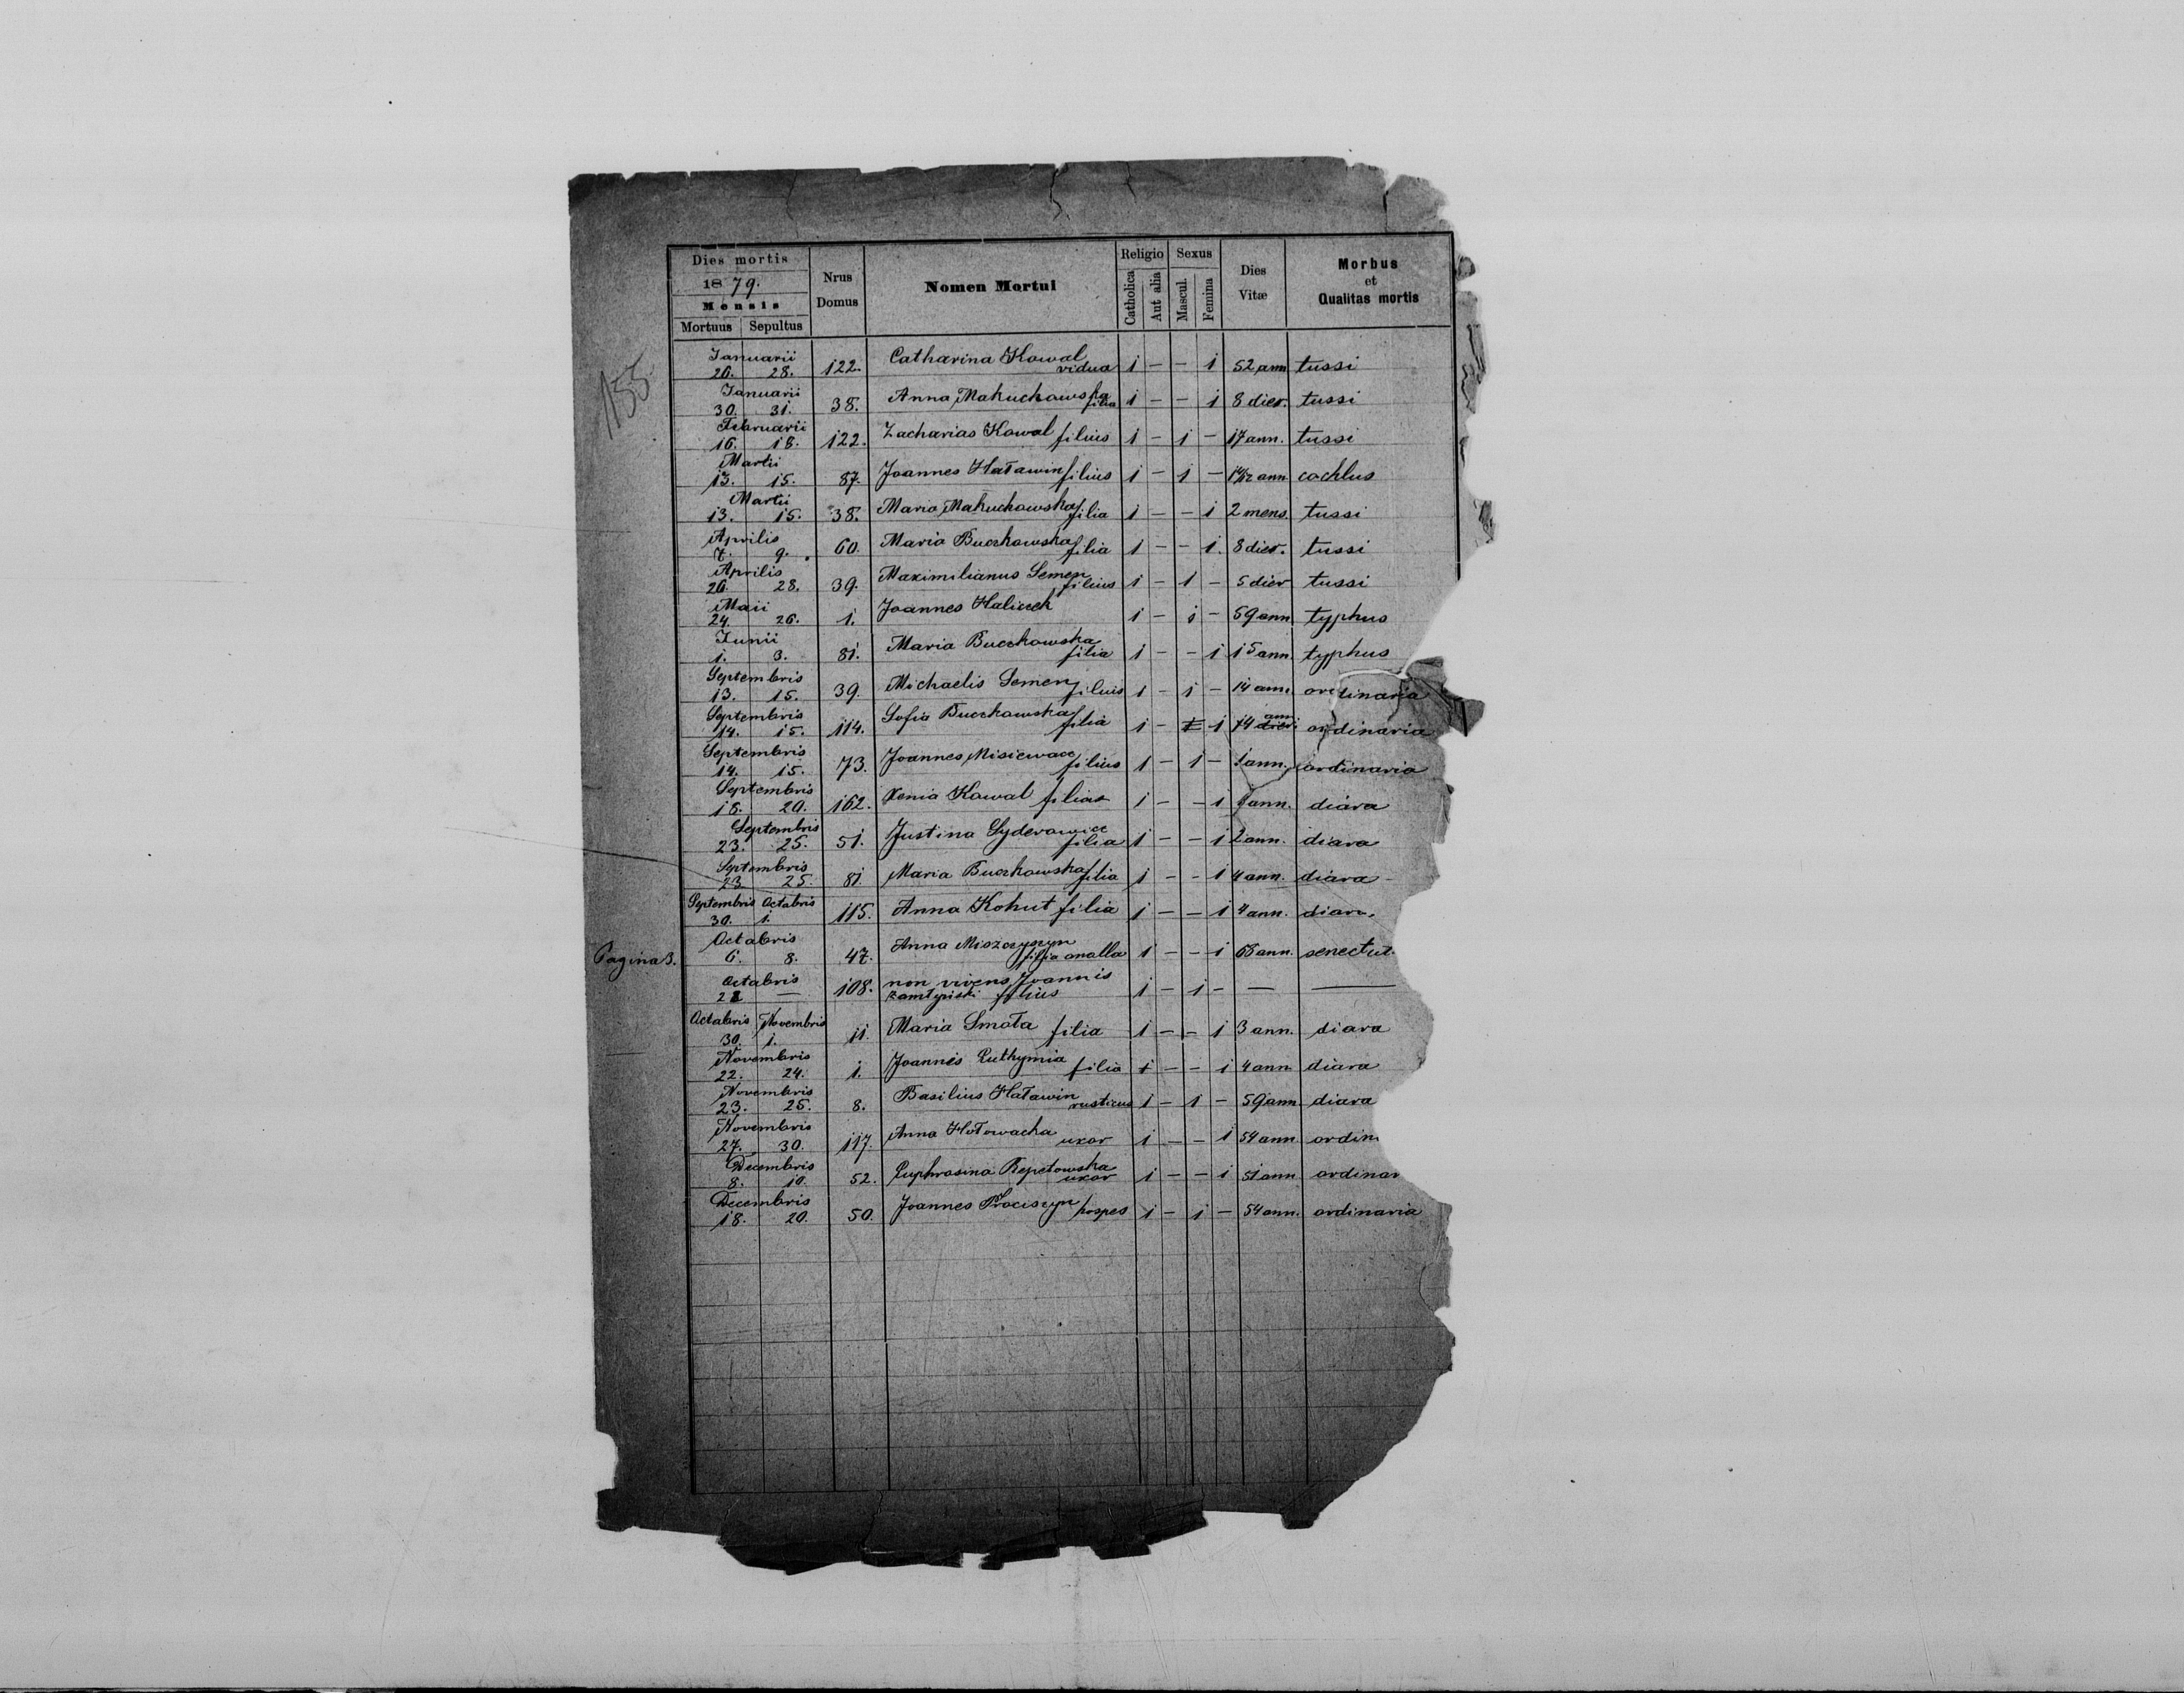 Dies mortis
1879.
Mensis
Mortuus Sepultus
Nrus
Domus
Nomen Mortui
Religio
Catholica
Aut alia
Sexus
Mascul.
Femina
Dies
Vitæ
Morbus
et
Qualitas mortis
155
Januarii
26. 28. 122. Catharina Kowal vidua 1 — — 1 52 ann tussi
Januarii
30. 31. 38. Anna Makuchowska filia 1 — — 1 8 dier. tussi
Februarii
16. 18. 122. Zacharias Kowal filius 1 — 1 — 17 ann. tussi
Martii
13. 15. 87. Joannes Haławin filius 1 — 1 — ann. cochlus
Martii
13. 15. 38. Maria Makuchowska filia 1 — — 1 2 mens. tussi
Aprilis
7. 9. 60. Maria Buczkowska filia 1 — — 1. 8 dier. tussi
Aprilis
26. 28. 39. Maximilianus Semen filius 1 — 1 — 5 dier tussi
Maii
24. 26. 1. Joannes Haliczek 1 — 1 — 59 ann typhus
Junii
1. 3. 81. Maria Buczkowska filia 1 — — 1 15 ann. typhus
Septembris
13. 15. 39. Michaelis Semen filius 1 — 1 — 14 ann. ordinaria
Septembris
14. 15. 114. Sofia Buczkowska filia 1 — 1 14 ann ordinaria
Septembris
14. 15. 73. Joannes Misiewacz filius 1 — 1 — 1 ann. ordinaria
Septembris
18. 20. 162. Xenia Kowal filia 1 — — 1 ann. diara
Septembris
23. 25. 51. Justina Syderowicz filia 1 — — 1 2 ann. diara
Septembris
23. 25. 81. Maria Buczkowska filia 1 — — 1 4 ann. diara
Septembris Octabris
30. 1. 115. Anna Kohut filia 1 — — 1 4 ann. diara
Octabris
Pagina 3. 6. 8. 47. Anna Miszczyszyn filia analla 1 — — 1 68 ann. senectut.
Octabris
21 — 108. non vivens Joannis
filius 1 — 1 — — —
Octabris Novembris
30. 1. 11. Maria Smoła filia 1 — — 1 3 ann. diara
Novembris
22. 24. 1. Joannis Euthymia filia 1 — — 1 4 ann diara
Novembris
23. 25. 8. Basilius Haławin rusticus 1 — 1 — 59 ann. diara
Novembris
27. 30. 117. Anna Hołowacha uxor 1 — — 1 54 ann ordin
Decembris
8. 10. 52. Euphrosina Repetowska uxor 1 — — 1 51 ann ordinar
Decembris
18. 20. 50. Joannes Prociszyn hospes 1 — 1 — 54 ann. ordinaria